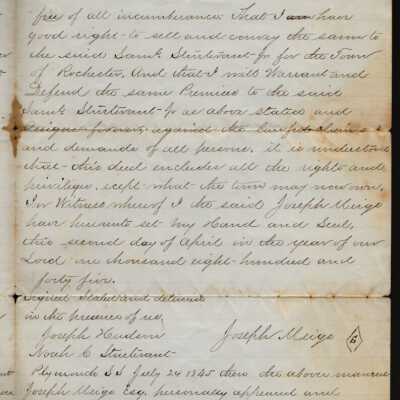 free of all incumbrance. That I have
good right to sell and convey the same to
the said Saml. Sturtevant Jr for the Town
of Rochester. And that I will Warrant and
Defend the same Premises to the said
Saml. Sturtevant Jr as above stated and
forever, against the Lawful claims
and demands of all persons. it is understood
that this deed excludes all the rights and
privileges, exept what the town may now own.
In Witness whereof I the said Joseph Meigs
have hereunto set my Hand and Seal,
this second day of April in the year of our
Lord one thousand eight hundred and
forty five.
Signed Sealed and delivered
in the presence of us,
Joseph Meigs
Joseph
Noah C Sturtevant
Plymouth SS July 24 1845 then the above
Joseph Meigs Esq. personally appeared and